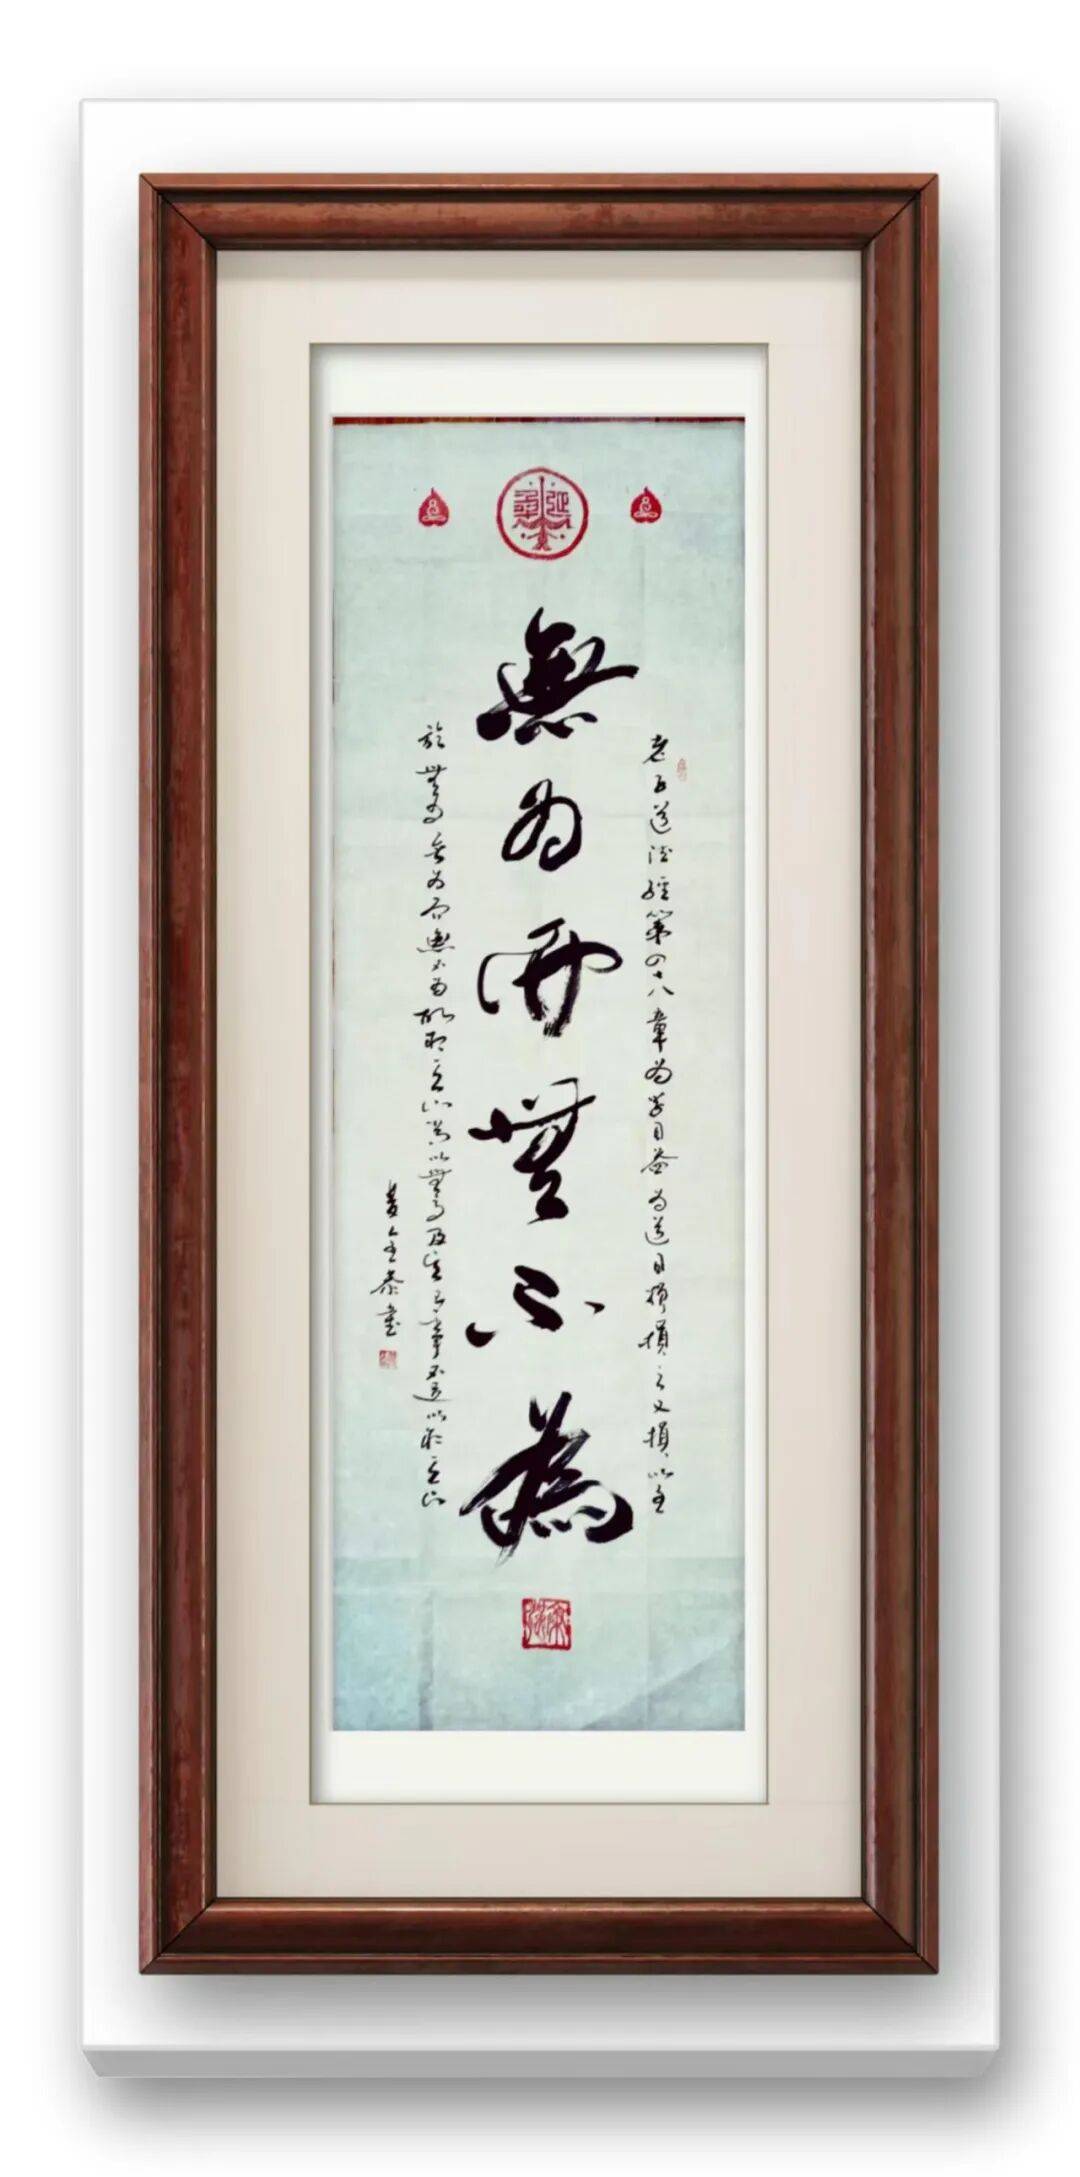 老子道德經第四十八章為學日益為道日損損之又損以至
無為而無不為
於無為無為而無不為故取天下常以無事及其有事不足以取天下